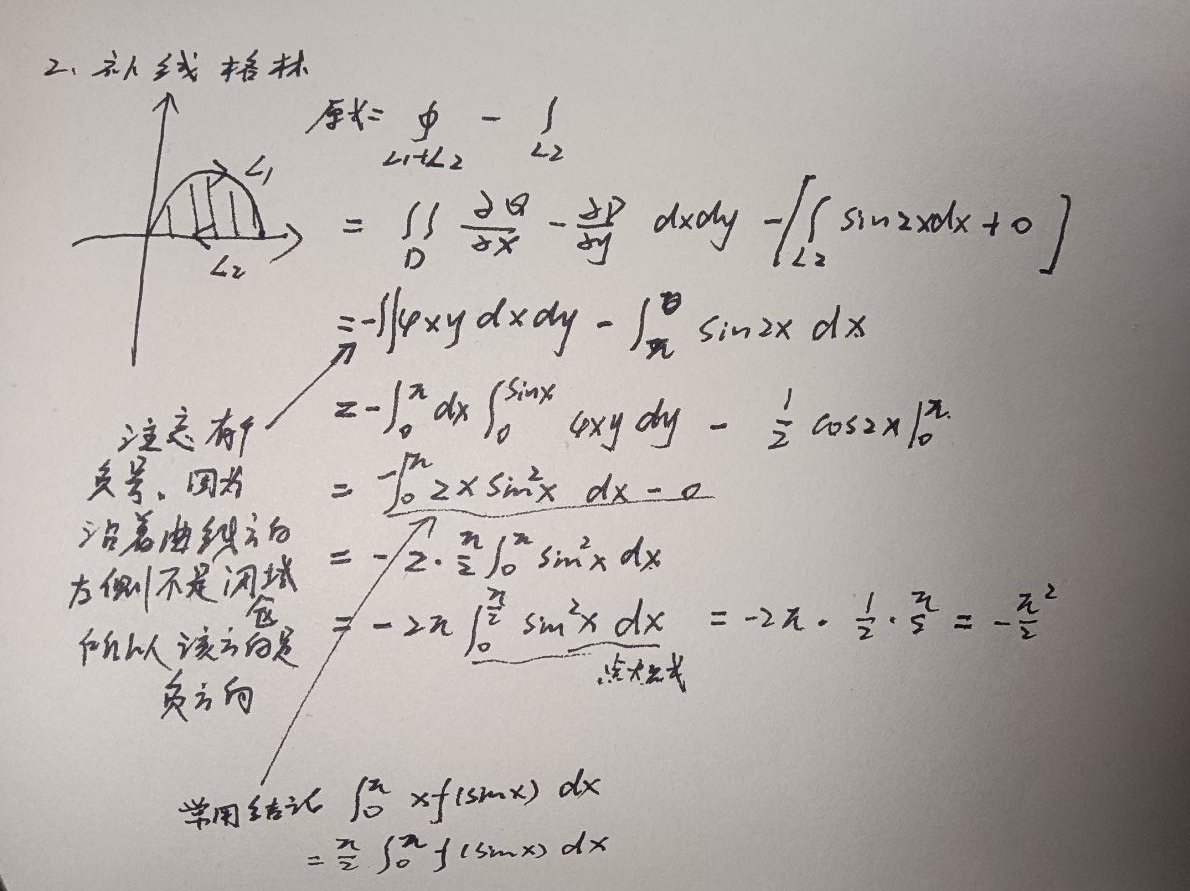 2、补线格林
原式= ∮_{L₁+L₂} - ∫_{L₂}
L₁
L₂
= ∬_D ∂Q/∂x - ∂P/∂y dxdy - [∫_{L₂} sin2xdx + 0]
= -∬4xy dxdy - ∫_π^0 sin2x dx
= -∫_0^π dx ∫_0^{sinx} 4xy dy - 1/2 cos2x|_0^π
= -∫_0^π 2x sin²x dx - 0
= -2·π/2 ∫_0^π sin²x dx
= -2π ∫_0^{π/2} sin²x dx = -2π · 1/2 · π/2 = -π²/2
点火公式
注意有个
负号。因为
沿着曲线方向
左侧不是闭域
所以该方向是
负方向
常用结论 ∫_0^π xf(sinx) dx
= π/2 ∫_0^π f(sinx) dx